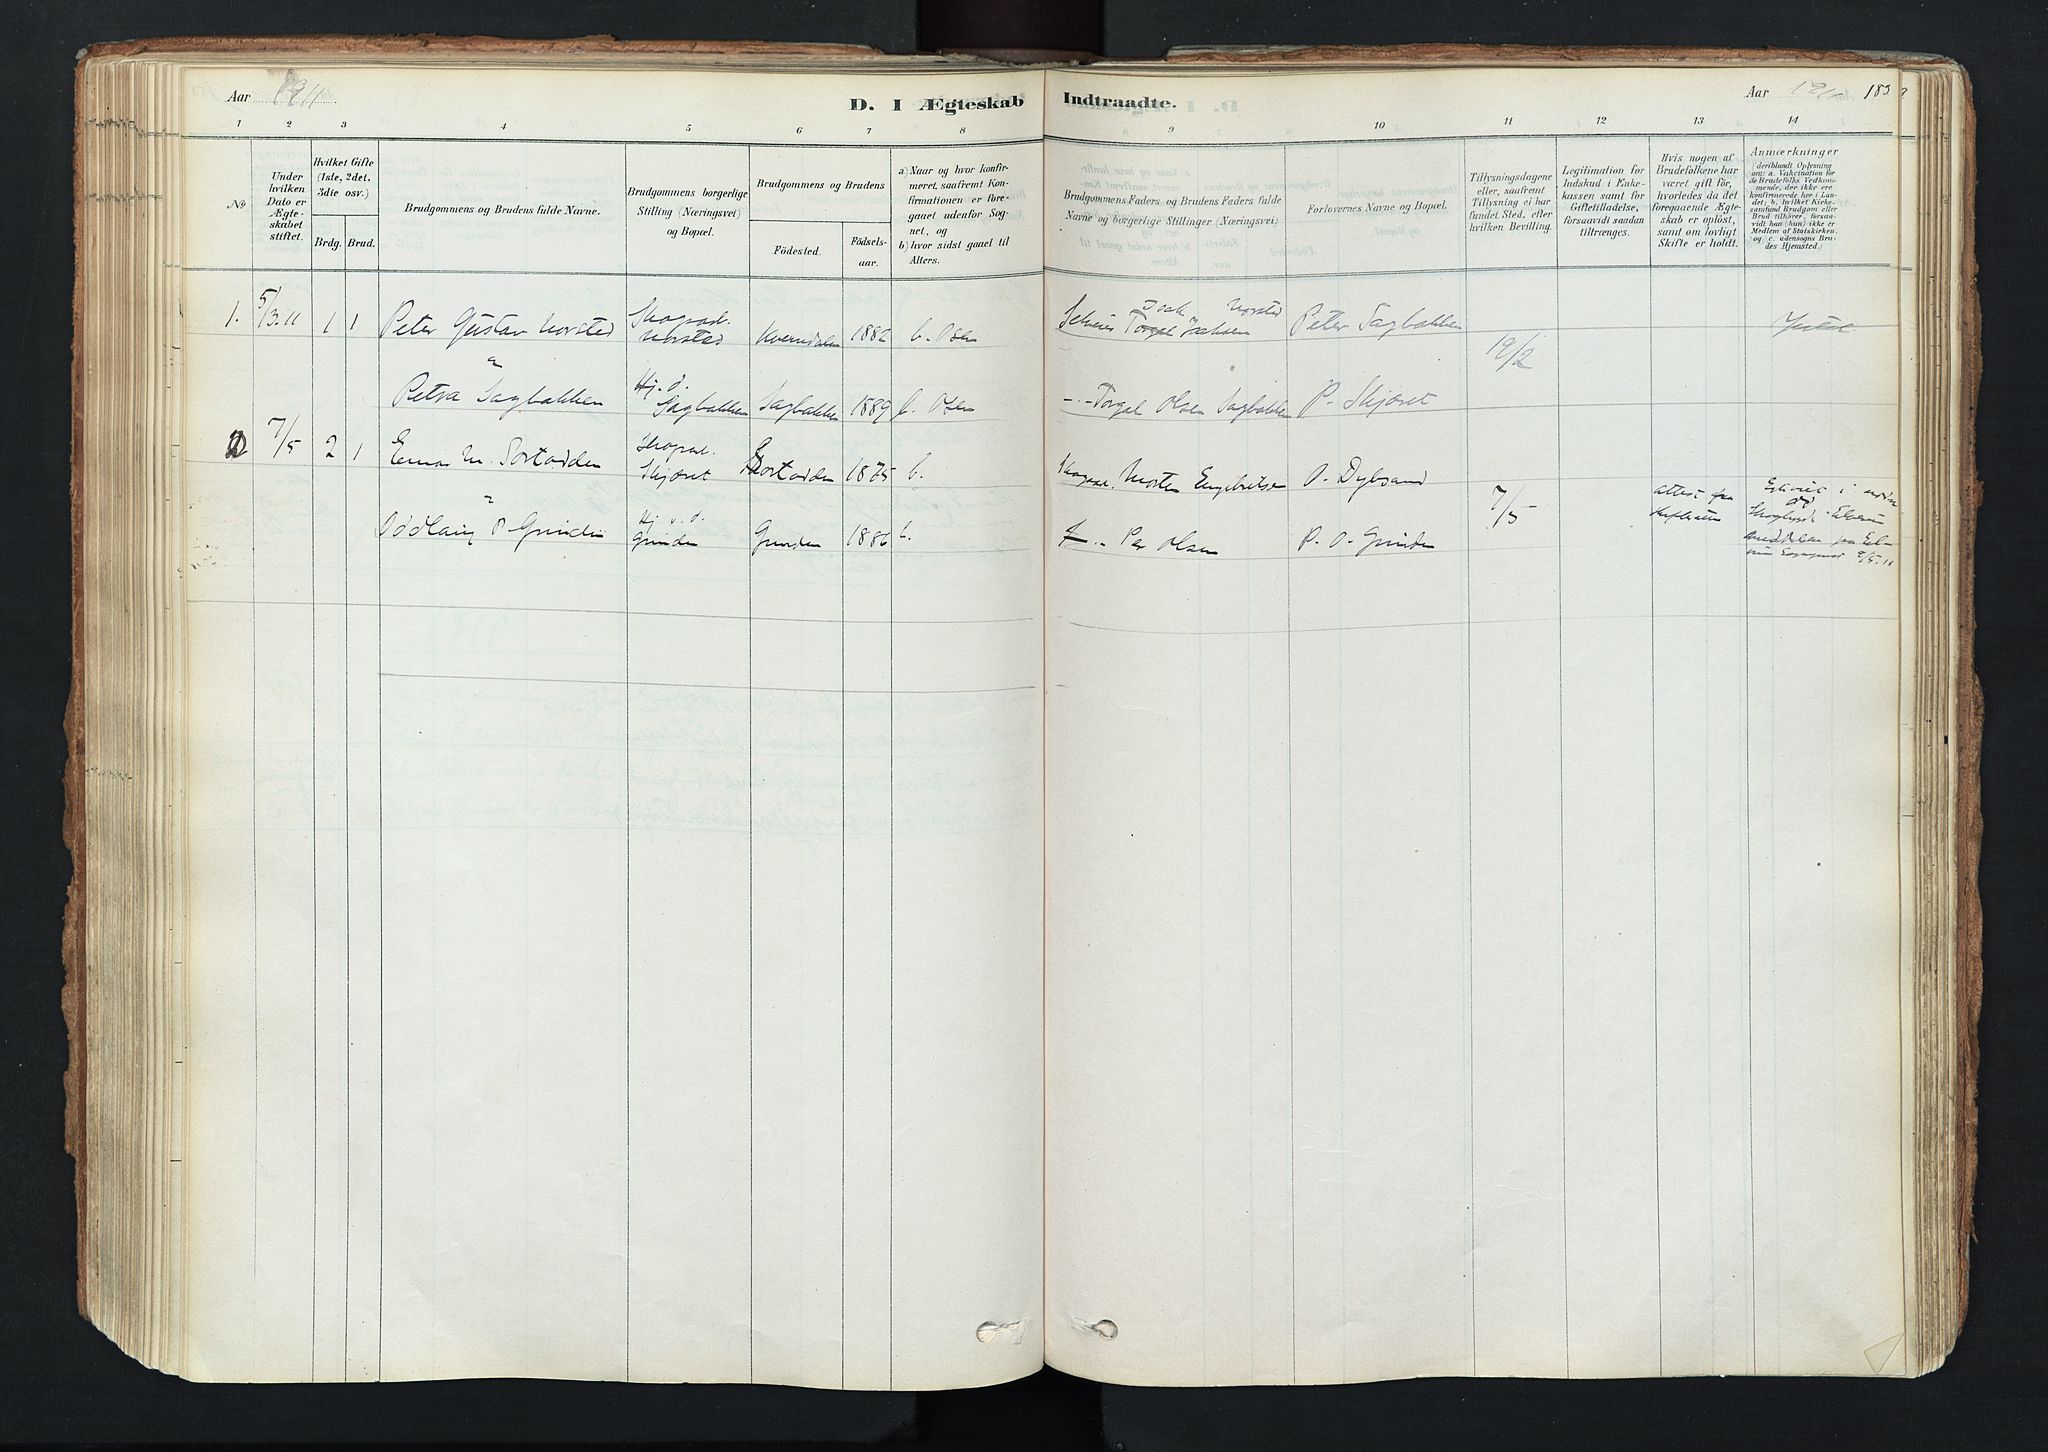 Aar 1911
D. I Ægteskab Indtraadte.
Aar 1911 183
1 2 3 4 5 6 7 8 9 10 11 12 13 14
No.
Under hvilken Dato er Ægteskabet stiftet.
Hvilket Gifte (1ste, 2det, 3die osv.)
Brdg. Brud.
Brudgommens og Brudens fulde Navne.
Brudgommens borgerlige Stilling (Næringsvei) og Bopæl.
Brudgommens og Brudens
Födested. Födselsaar.
a) Naar og hvor konfirmeret, saafremt Konfirmationen er foregaaet udenfor Sognet, og
b) hvor sidst gaaet til Alters.
Brudgommens Faders og Brudens Faders fulde Navne og borgerlige Stillinger (Næringsvei)
Forlovernes Navne og Bopæl.
Tillysningsdagene eller, saafremt Tillysning ei har fundet Sted, efter hvilken Bevilling.
Legitimation for Indskud i Enkekassen samt for Giftetilladelse, forsaavidt saadan tiltrænges.
Hvis nogen af Brudefolkene har været gift för, hvorledes da det foregaaende Ægteskab er oplöst, samt om lovligt Skifte er holdt.
Anmærkninger
(deriblandt Oplysning om: a. Vakcination for de Brudefolks Vedkommende, der ikke ere konfirmerede her i Landet; b. hvilket Kirkesamfund Brudgom eller Brud tilhörer, forsaavidt han (hun) ikke er Medlem af Statskirken, og c. udensogns Brudes Hjemsted.)
1. 5/3.11 1 1 Peter Gustav Norsted Norsted Kverndalen 1882 b. Osen Isak Norsted Peter Sagbakken
"
19/2
Petra Sagbakken Hj. d. Sagbakken Sagbakken 1889 b. Osen - Torgal Olsen Sagbakken P. Skjæret
2 7/5 2 1 Einar M. Sortodden Skjæret Sortodden 1875 b. Morten Engebretsen O. Dybsand
"
7/5
attest fra Skifteretten
Oddlaug P Grinden Grinden Grinden 1886 b. Per Olsen P. O. Grinden